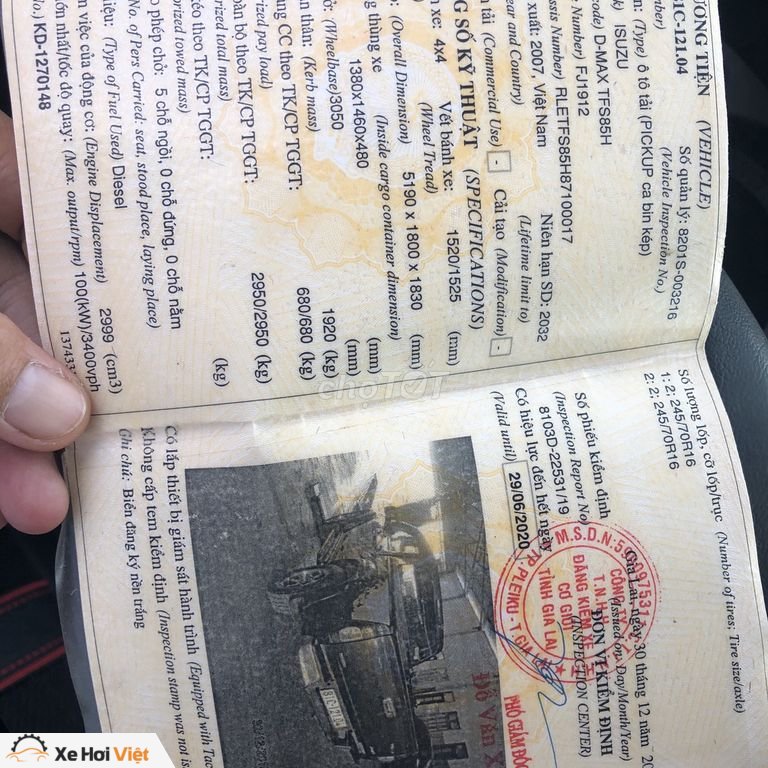 ƯƠNG TIỆN (VEHICLE)
1C-121.04
Số quản lý: 8201S-003216
(Vehicle Inspection No.)
(Type) ô tô tải (PICKUP ca bin kép)
ISUZU
D-MAX TFS85H
Number) FJ1912
Number) RLETFS85H87100017
xuất: 2007, Việt Nam
Year and Country)
Niên hạn SD: 2032
(Lifetime limit to)
tải (Commercial Use) -
Cải tạo (Modification) -
G SỐ KỸ THUẬT (SPECIFICATIONS)
xe: 4x4
Vết bánh xe: 1520/1525 (mm)
(Wheel Tread)
5190 x 1800 x 1830 (mm)
(Overall Dimension)
thùng xe (mm)
1380x1460x480
(Inside cargo container dimension)
sở: (Wheelbase)3050 (mm)
thân: (Kerb mass) 1920 (kg)
CC theo TK/CP TGGT: 680/680 (kg)
pay load)
bộ theo TK/CP TGGT: 2950/2950 (kg)
total mass)
kéo theo TK/CP TGGT: (kg)
towed mass)
phép chở: 5 chỗ ngồi, 0 chỗ đứng, 0 chỗ nằm
No. of Pers Carried: seat, stood place, laying place)
(Type of Fuel Used) Diesel
việc của động cơ: (Engine Displacement) 2999 (cm3)
nhất/tốc độ quay: (Max. output/rpm) 100(KW)/3400vph
KD-1270148
Số lượng lốp, cỡ lốp/trục (Number of tires; Tire size/axle)
1: 2; 245/70R16
2: 2; 245/70R16
Số phiếu kiểm định
(Inspection Report No)
8103D-22531/19
Có hiệu lực đến hết ngày
(Valid until) 29/06/2020
Gia Lai, ngày 30 tháng 12 năm
(Issued on: Day/Month/Year)
ĐƠN VỊ KIỂM ĐỊNH
(INSPECTION CENTER)
CÔNG TY
T.N.H.H
ĐĂNG KIỂM XE
CƠ GIỚI
TỈNH GIA LAI
TP.PLEIKU - T.GIA LAI
PHÓ GIÁM ĐỐC
Đỗ Văn
81C-121.04
Có lắp thiết bị giám sát hành trình (Equipped with
Không cấp tem kiểm định (Inspection stamp was not
Ghi chú: Biển đăng ký nền trắng
chợTỐT
Xe Hơi Việt